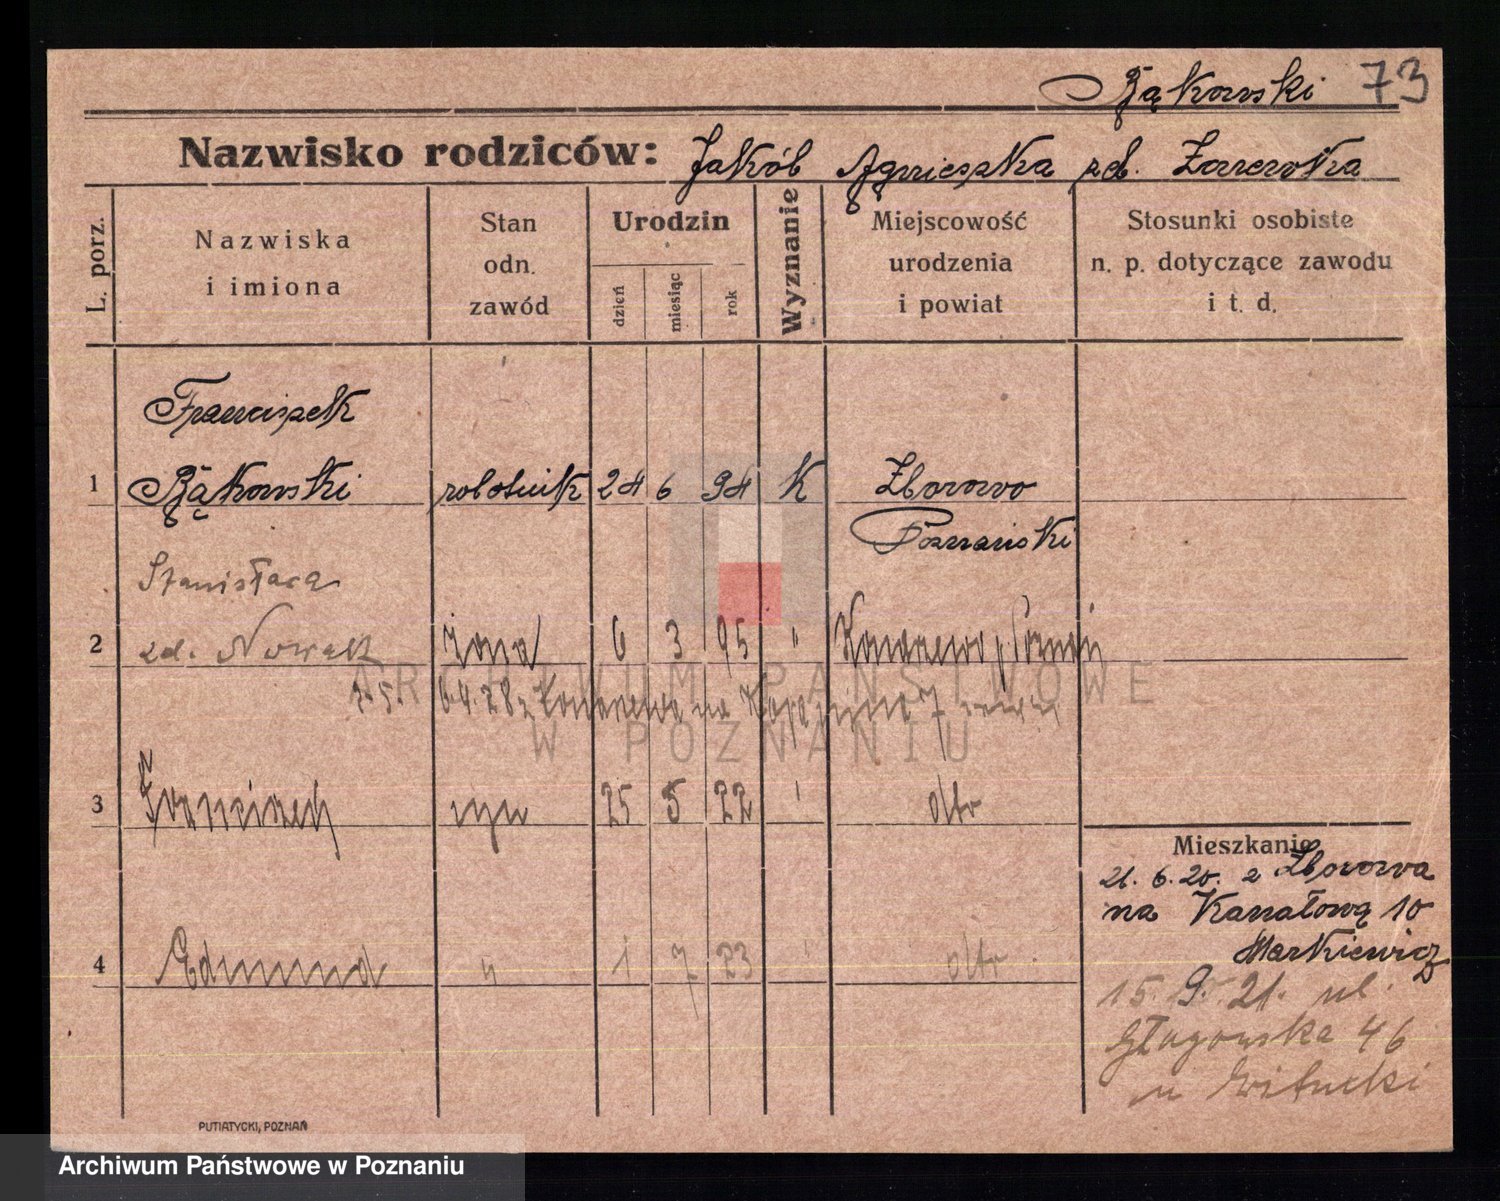 Bąkowski 73
Nazwisko rodziców: Jakób Agnieszka zd.
L. porz.
Nazwiska i imiona
Stan odn. zawód
Urodzin
dzień
miesiąc
rok
Wyznanie
Miejscowość urodzenia i powiat
Stosunki osobiste n. p. dotyczące zawodu i t. d.
Franciszek
1 Bąkowski robotnik 24 6 94 K Zborowo
Poznański
Stanisława
2 zd. Nowak żona 6 3 95 "
6.4.28 z na
3 Franciszek syn 25 5 22 '
4 Edmund " 1 7 23 '
Mieszkanie
21. 6. 20. z Zborowa
na Kanałową 10
Markiewicz
15. 9. 21. ul.
Głogowska 46
u Witucki
PUTIATYCKI, POZNAŃ
ARCHIWUM PAŃSTWOWE
W POZNANIU
Archiwum Państwowe w Poznaniu